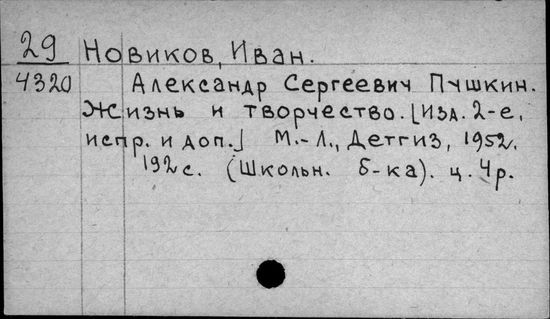 29 Новиков, Иван.
4320 Александр Сергеевич Пушкин.
Жизнь и творчество. [Изд. 2-е,
испр. и доп.] М.-Л., Детгиз, 1952.
192 с. (Школьн. б-ка). ц. 4 р.